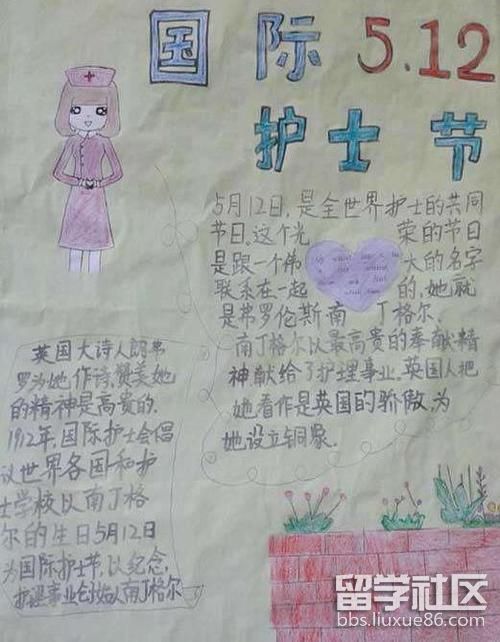 国际 5.12
护士节
5月12日,是全世界护士的共同
节日.这个光荣的节日
是跟一个伟大的名字
联系在一起的,她就
是弗罗伦斯南丁格尔.
南丁格尔以最高贵的奉献精
神献给了护理事业.英国人把
她看作是英国的骄傲,为
她设立铜象.
英国大诗人朗弗
罗为她作诗,赞美她
的精神是高贵的.
1912年,国际护士会倡
议世界各国和护
士学校以南丁格
尔的生日5月12日
为国际护士节,以纪念,
护理事业创始人南丁格尔
留学社区
bbs.liuxue86.com